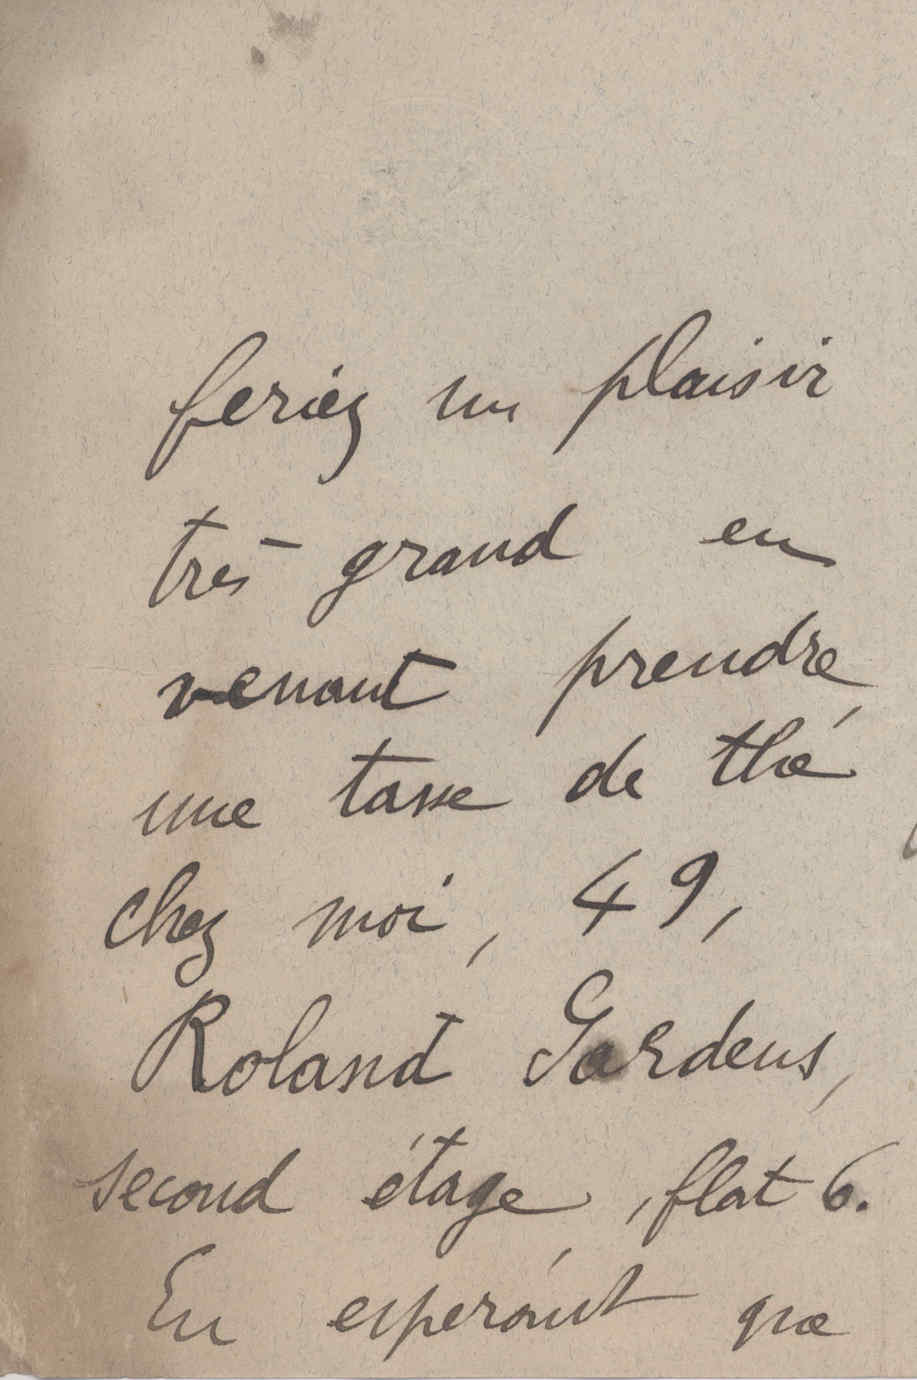 feriez un plaisir
très grand en
venant prendre
une tasse de thé
chez moi, 49,
Roland Gardens,
second étage, flat 6.
En espérant que